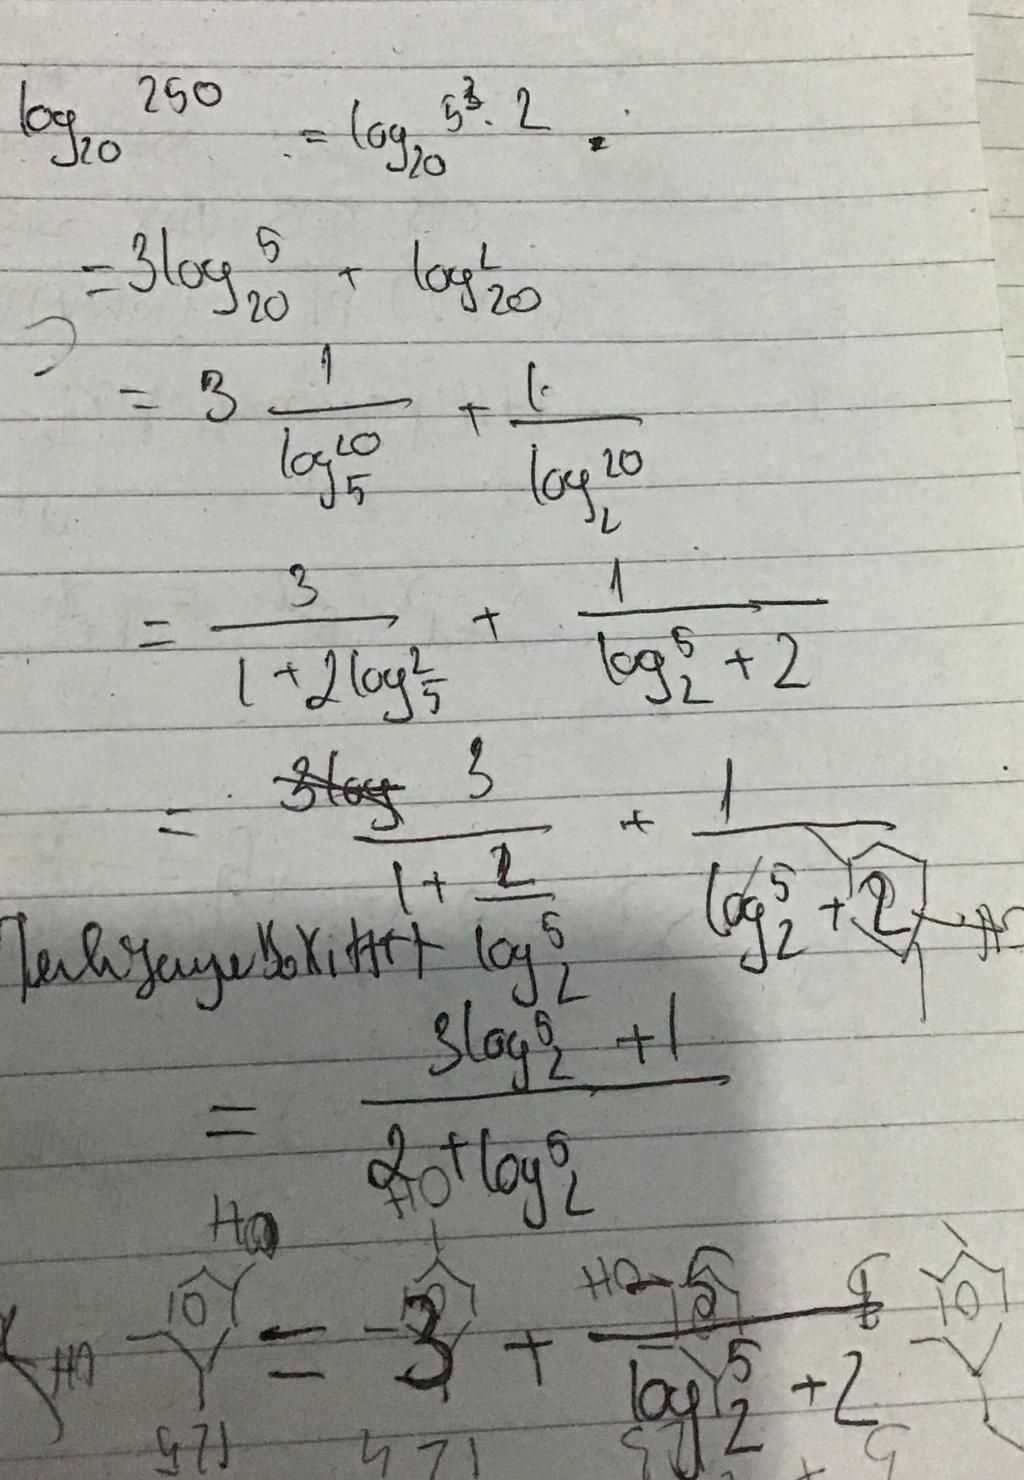 log₂₀ 250 = log₂₀ 5³·2
= 3log₂₀ 5 + log₂₀ 2
= 3 1/(log₅ 20) + 1/(log₂ 20)
= 3/(1+2log₅ 2) + 1/(log₂ 5 + 2)
= 3/(1 + 2/(log₂ 5)) + 1/(log₂ 5 + 2)
= (3log₂ 5 + 1)/(2 + log₂ 5)
HO
HO
= 3 + 5/(log₂ 5 + 2)